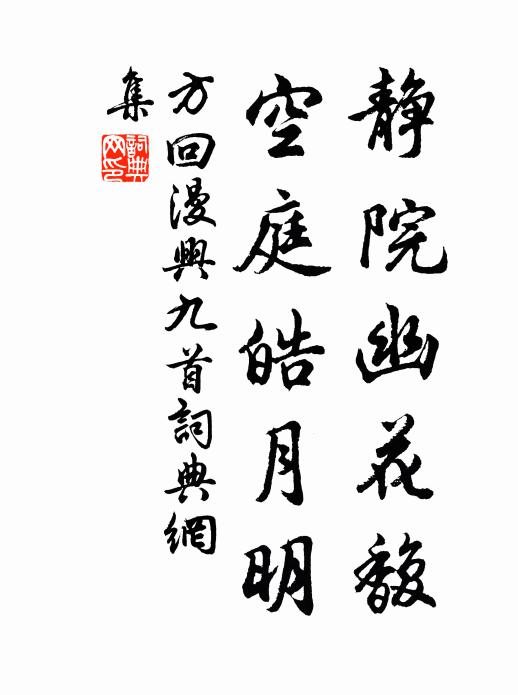 静院幽花馥
空庭皓月明
方回漫興九首詞典網
集
詞典
网印